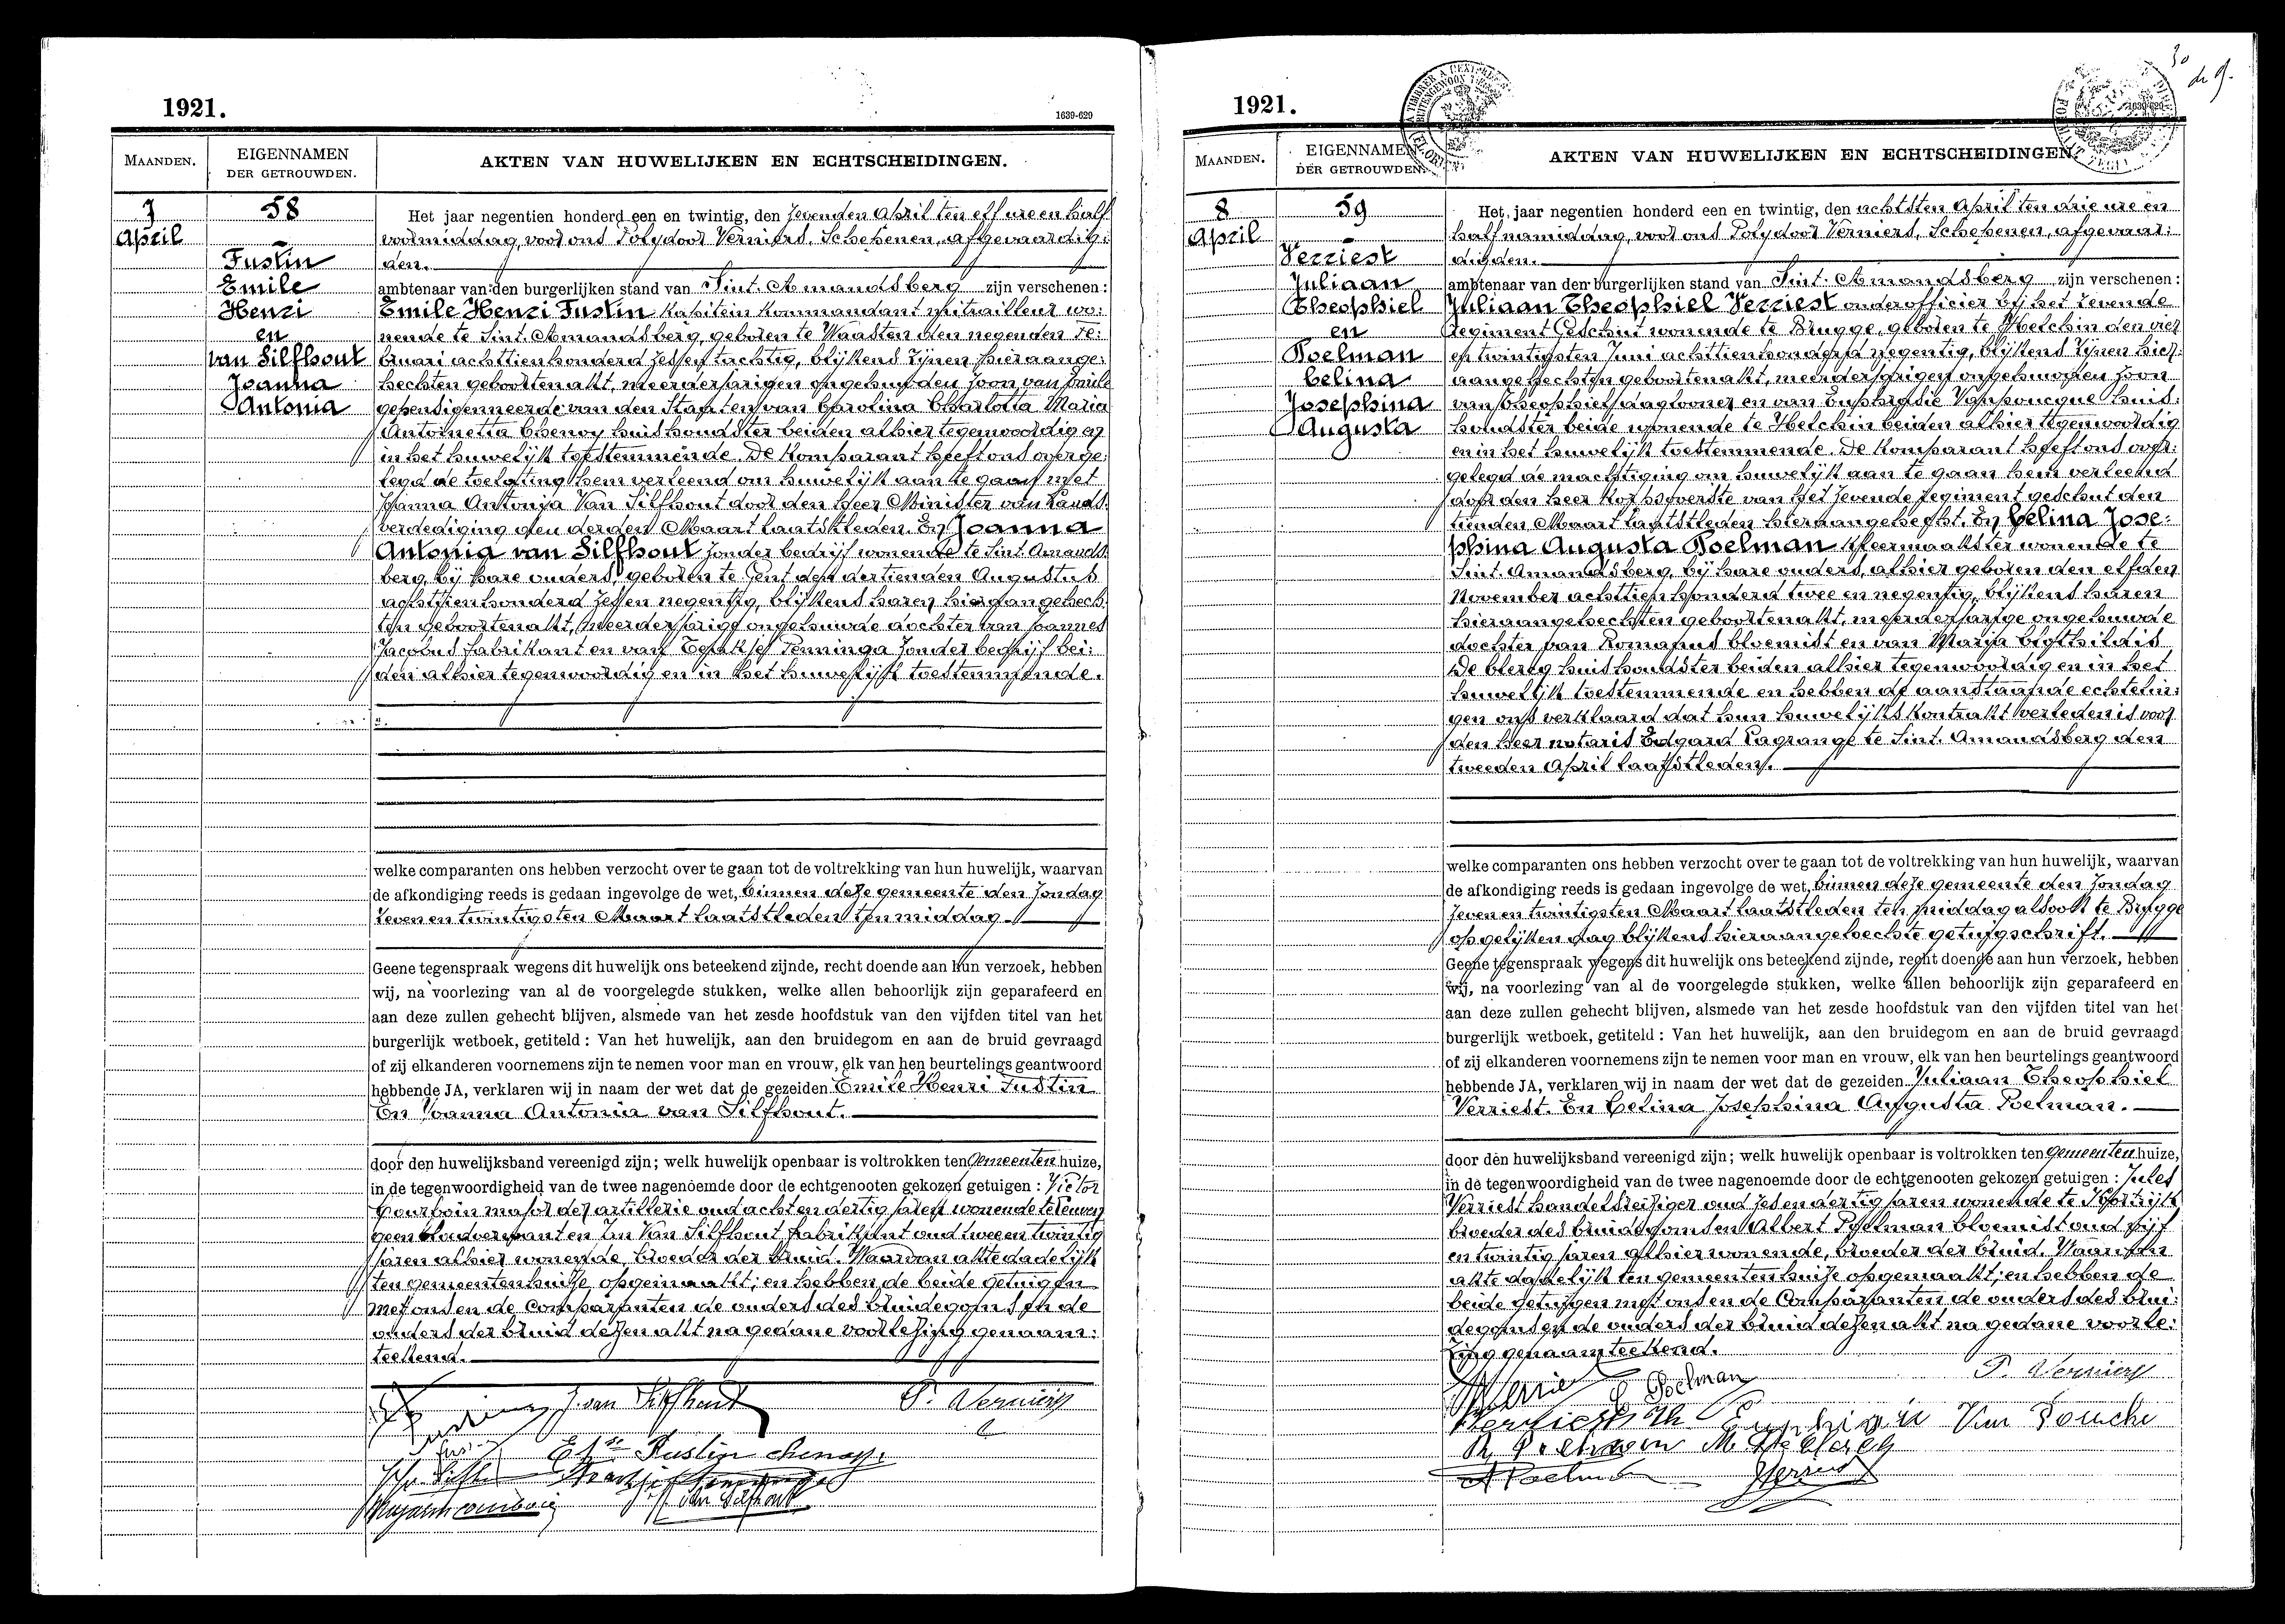 1921.
1639-629
MAANDEN.
EIGENNAMEN
DER GETROUWDEN.
AKTEN VAN HUWELIJKEN EN ECHTSCHEIDINGEN.
7
April
58
Fustin
Emile
Henri
en
van Silfhout
Joanna
Antonia
Het jaar negentien honderd een en twintig, den zevenden April ten elf ure en half
voormiddag, voor ons Polydoor Verniers, Schepenen, afgevaardig:
den.
ambtenaar van den burgerlijken stand van Sint. Amandsberg zijn verschenen:
Emile Henri Fustin kapitein kommandant mitrailleur wo:
nende te Sint. Amandsberg, geboren te Waasten den negenden Fe:
bruari achttienhonderd zes en tachtig, blijkens zijnen hieraange:
hechten geboortenakt, meerderjarigen ongehuwden zoon van Emile
gepensigenneerde van den Staat en van Carolina Charlotta Maria
Antoinetta Chenoy huishoudster beiden alhier tegenwoordig en
in het huwelijk toestemmende. De komparant heeft ons overge:
legd de toelating hem verleend om huwelijk aan te gaan met
Joanna Antonia Van Silfhout door den heer Minister van Lands
verdediging den derden Maart laatstleden. En Joanna
Antonia van Silfhout zonder bedrijf wonende te Sint. Amands
berg, bij hare ouders, geboren te Gent den dertienden Augustus
achttienhonderd zes en negentig, blijkens haren hieraangehech
ten geboortenakt, meerderjarige ongehuwde dochter van Joannes
Jacobus fabrikant en van Penninga zonder bedrijf bei:
den alhier tegenwoordig en in het huwelijk toestemmende.
welke comparanten ons hebben verzocht over te gaan tot de voltrekking van hun huwelijk, waarvan
de afkondiging reeds is gedaan ingevolge de wet, binnen deze gemeente den zondag
zeven en twintigsten Maart laatstleden ten middag.
Geene tegenspraak wegens dit huwelijk ons beteekend zijnde, recht doende aan hun verzoek, hebben
wij, na voorlezing van al de voorgelegde stukken, welke allen behoorlijk zijn geparafeerd en
aan deze zullen gehecht blijven, alsmede van het zesde hoofdstuk van den vijfden titel van het
burgerlijk wetboek, getiteld : Van het huwelijk, aan den bruidegom en aan de bruid gevraagd
of zij elkanderen voornemens zijn te nemen voor man en vrouw, elk van hen beurtelings geantwoord
hebbende JA, verklaren wij in naam der wet dat de gezeiden Emile Henri Fustin
En Joanna Antonia van Silfhout.
door den huwelijksband vereenigd zijn; welk huwelijk openbaar is voltrokken ten Gemeenten huize,
in de tegenwoordigheid van de twee nagenoemde door de echtgenooten gekozen getuigen : Victor
Courboin major der artillerie oud acht en dertig jaren wonende te Leuven
geen bloedverwant en Jan Van Silfhout fabrikant oud twee en twintig
jaren alhier wonende, broeder der bruid. Waarvan akte dadelijk
ten gemeentenhuize opgemaakt; en hebben de beide getuigen
met ons en de Comparanten de ouders des bruidegoms en de
ouders der bruid dezen akt na gedane voorlezing genaam:
teekend.
J. van Silfhout
P. Verniers
Fustin Chenoy.
1921.
MAANDEN.
EIGENNAMEN
DER GETROUWDEN.
AKTEN VAN HUWELIJKEN EN ECHTSCHEIDINGEN.
8
April
59
Verriest
Juliaan
Theophiel
en
Poelman
Celina
Josephina
Augusta
Het jaar negentien honderd een en twintig, den achtsten April ten drie ure en
half namiddag, voor ons Polydoor Verniers, Schepenen, afgevaar:
digden.
ambtenaar van den burgerlijken stand van Sint. Amandsberg zijn verschenen:
Juliaan Theophiel Verriest onderofficier bij het zevende
Regiment Geschut wonende te Brugge, geboren te Helchin den vier
en twintigsten Juni achttienhonderd negentig, blijkens zijnen hier:
aangehechten geboortenakt, meerderjarigen ongehuwden zoon
van Theophiel daglooner en van Euphrosie Vanpoucque huis:
houdster beide wonende te Helchin beiden alhier tegenwoordig
en in het huwelijk toestemmende. De komparant heeft ons over:
gelegd de machtiging om huwelijk aan te gaan hem verleend
door den heer Korpsoverste van het zevende regiment geschut den
tienden Maart laatstleden hieraangehecht. En Celina Jose:
phina Augusta Poelman kleermaakster wonende te
Sint. Amandsberg, bij hare ouders, alhier geboren den elfden
November achttienhonderd twee en negentig, blijkens haren
hieraangehechten geboortenakt, meerderjarige ongehuwde
dochter van Romanus bloemist en van Maria Clothildis
De Clercq huishoudster beiden alhier tegenwoordig en in het
huwelijk toestemmende en hebben de aanstaande echtelin:
gen ons verklaard dat hun huwelijkskontrakt verleden is voor
den heer notaris Edgard Lagrange te Sint. Amandsberg den
tweeden April laatstleden.
welke comparanten ons hebben verzocht over te gaan tot de voltrekking van hun huwelijk, waarvan
de afkondiging reeds is gedaan ingevolge de wet, binnen deze gemeente den zondag
zeven en twintigsten Maart laatstleden ten middag alsook te Brugge
op gelijken dag blijkens hieraangehechte getuigschrift.
Geene tegenspraak wegens dit huwelijk ons beteekend zijnde, recht doende aan hun verzoek, hebben
wij, na voorlezing van al de voorgelegde stukken, welke allen behoorlijk zijn geparafeerd en
aan deze zullen gehecht blijven, alsmede van het zesde hoofdstuk van den vijfden titel van het
burgerlijk wetboek, getiteld : Van het huwelijk, aan den bruidegom en aan de bruid gevraagd
of zij elkanderen voornemens zijn te nemen voor man en vrouw, elk van hen beurtelings geantwoord
hebbende JA, verklaren wij in naam der wet dat de gezeiden Juliaan Theophiel
Verriest. En Celina Josephina Augusta Poelman.
door den huwelijksband vereenigd zijn; welk huwelijk openbaar is voltrokken ten gemeenten huize,
in de tegenwoordigheid van de twee nagenoemde door de echtgenooten gekozen getuigen : Jules
Verriest handelsreiziger oud zes en dertig jaren wonende te Kortrijk
broeder des bruidegoms en Albert Poelman bloemist oud vijf
en twintig jaren alhier wonende, broeder der bruid. Waarvan
akte dadelijk ten gemeentenhuize opgemaakt; en hebben de
beide getuigen met ons en de Comparanten de ouders des brui:
degoms en de ouders der bruid dezen akt na gedane voorle:
zing genaamteekend.
C Poelman
P. Verniers
Verriest Th
M De Clercq
A Poelman
Verriest